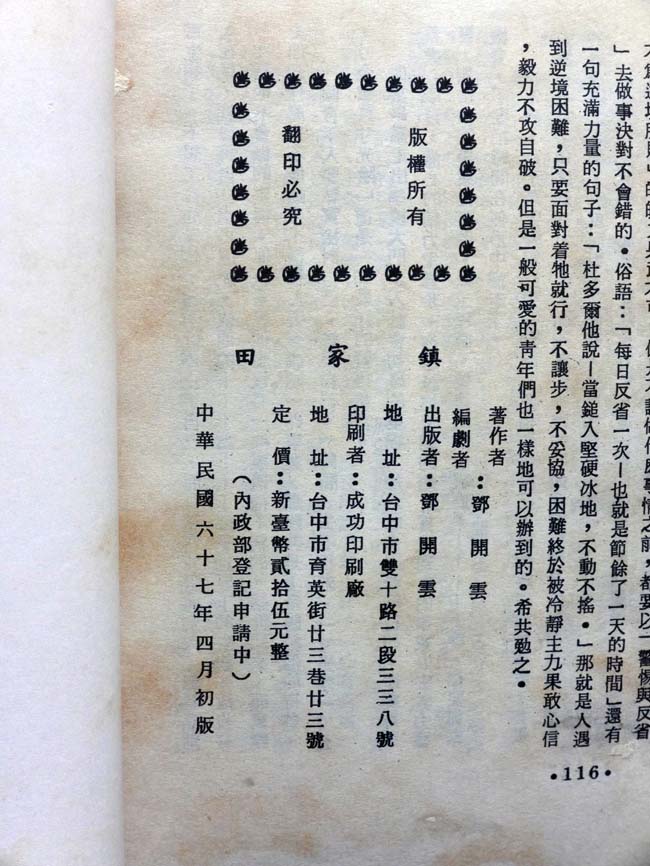 事情之前，都要以一警惕與反省
」去做事決對不會錯的。俗語：「每日反省一次—也就是節餘了一天的時間」還有
一句充滿力量的句子：「杜多爾他說—當鎚入堅硬冰地，不動不搖。」那就是人遇
到逆境困難，只要面對着牠就行，不讓步，不妥協，困難終於被冷靜主力果敢心信
，毅力不攻自破。但是一般可愛的青年們也一樣地可以辦到的。希共勉之。
版權所有
翻印必究
田家鎮
著作者
編劇者
：鄧開雲
出版者：鄧開雲
地址：台中市雙十路二段三三八號
印刷者：成功印刷廠
地址：台中市育英街廿三巷廿三號
定價：新臺幣貳拾伍元整
（內政部登記申請中）
中華民國六十七年四月初版
•116•